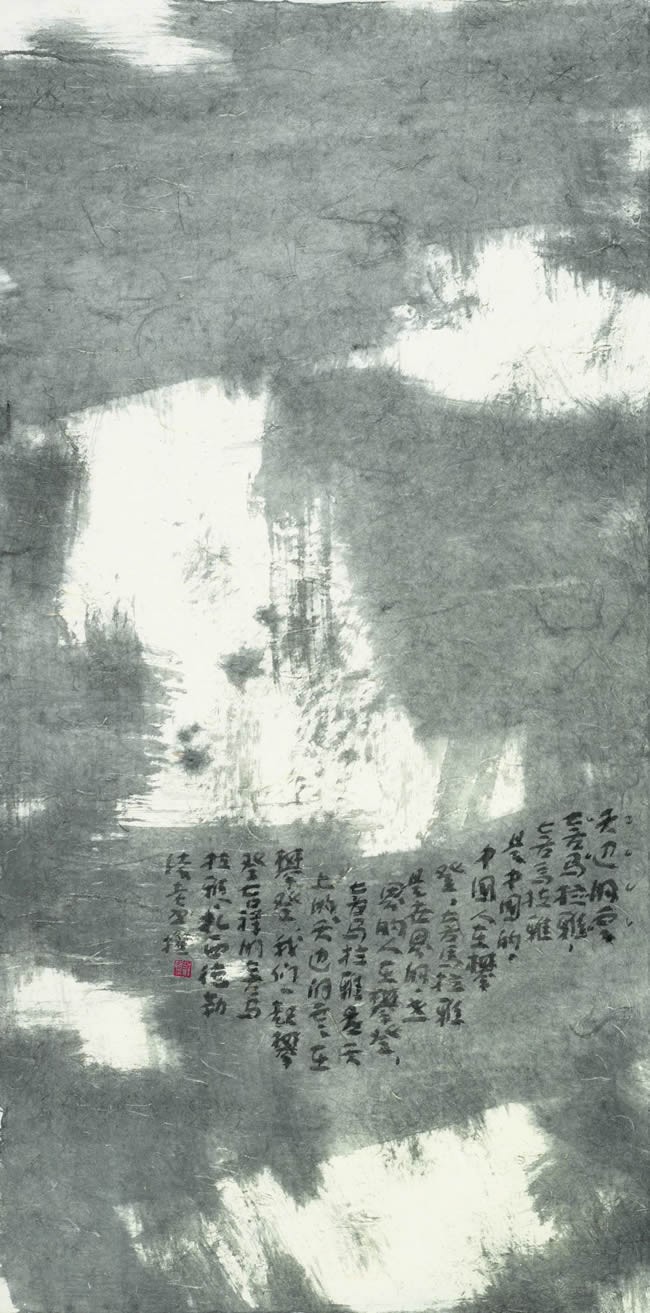 天边的云
喜马拉雅，
喜马拉雅
是中国的。
中国人在攀
登。喜马拉雅
是世界的。世
界的人在攀登，
喜马拉雅是天
上的。天边的云在
攀登。我们一起攀
登吉祥的喜马
拉雅。扎西德勒